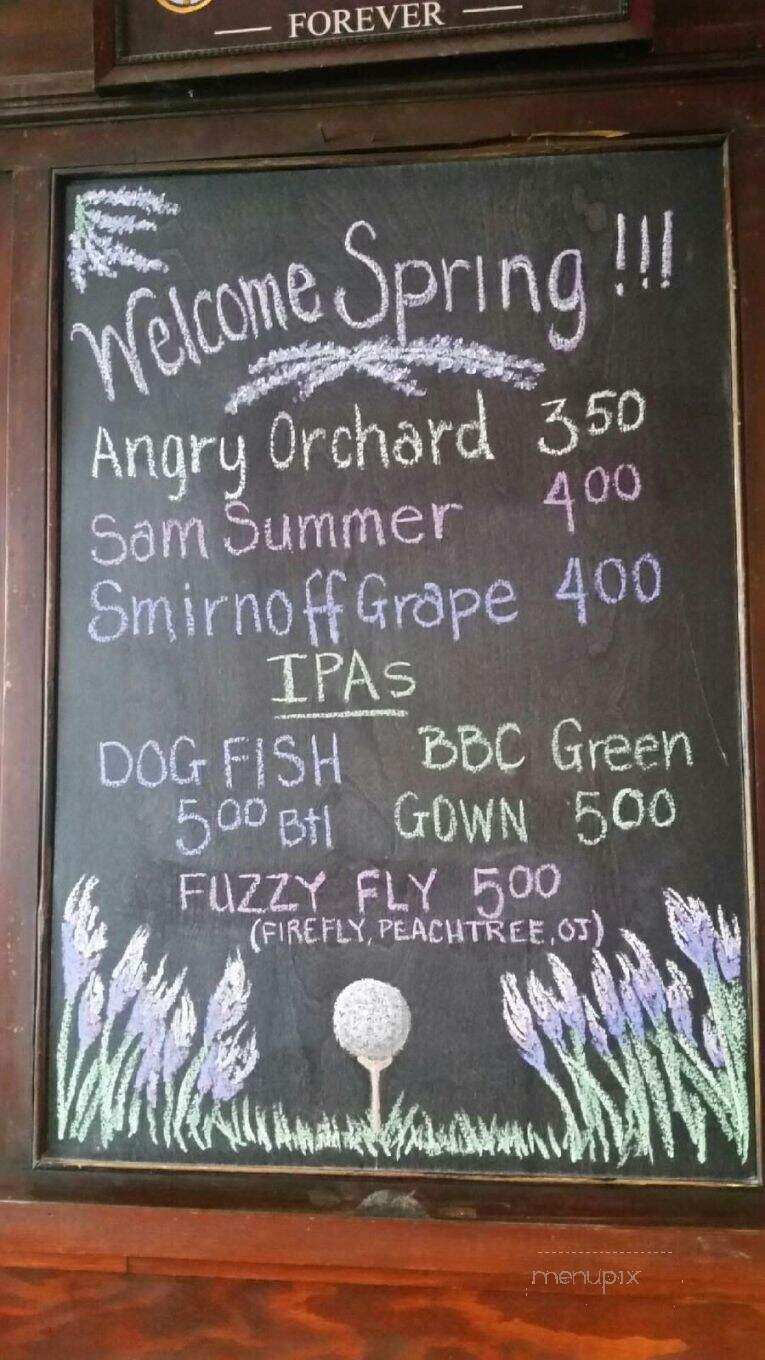 — FOREVER —
Welcome Spring!!!
Angry Orchard 3.50
Sam Summer 4.00
Smirnoff Grape 400
IPAs
DOG FISH
500 Btl
BBC Green
GOWN 500
FUZZY FLY 500
(FIREFLY, PEACHTREE, OJ)
menupix